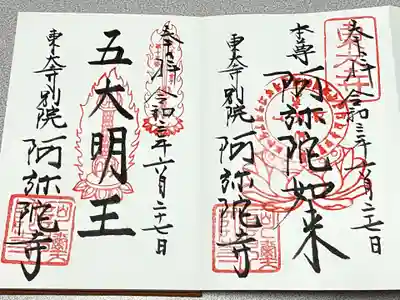 奉拝
令和三年六月二十七日
本尊
阿弥陀如来
東大寺別院
阿弥陀寺
奉拝
令和三年六月二十七日
五大明王
東大寺別院
阿弥陀寺